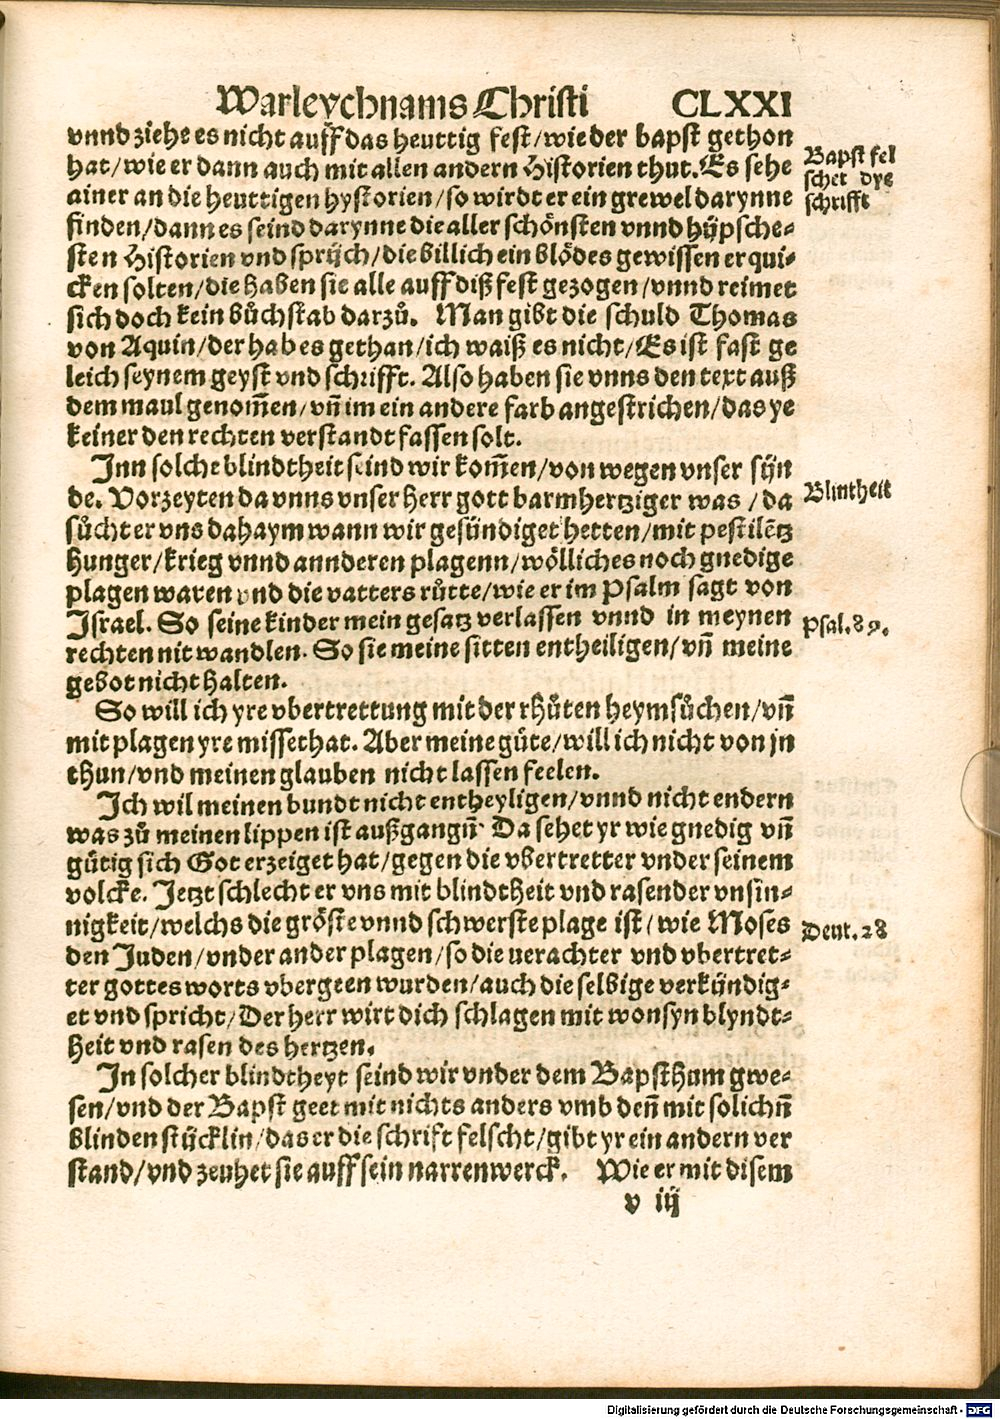 Warleychnams Christi CLXXI
vnnd ziehe es nicht auff das heuttig fest/wie der bapst gethon
hat/wie er dann auch mit allen andern Historien thut. Es sehe
ainer an die heuttigen hystorien/so wirdt er ein grewel darynne
finden/dann es seind darynne die aller schönsten vnnd hüpsche⸗
sten Historien vnd sprüch/die billich ein blödes gewissen erqui⸗
cken solten/die haben sie alle auff diß fest gezogen/vnnd reimet
sich doch kein bůchstab darzů. Man gibt die schuld Thomas
von Aquin/der hab es gethan/ich waiß es nicht/Es ist fast ge
leich seynem geyst vnd schrifft. Also haben sie vnns den text auß
dem maul genom̄en/vn̄ im ein andere farb angestrichen/das ye
keiner den rechten verstandt fassen solt.
Bapst fel
schet dye
schrifft
Inn solche blindtheit seind wir kom̄en/von wegen vnser sün
de. Vorzeyten da vnns vnser herr gott barmhertziger was/da
sůcht er vns dahaym wann wir gesündiget hetten/mit pestilētz
hunger/krieg vnnd annderen plagenn/wölliches noch gnedige
plagen waren vnd die vatters růtte/wie er im Psalm sagt von
Israel. So seine kinder mein gesatz verlassen vnnd in meynen
rechten nit wandlen. So sie meine sitten entheiligen/vn̄ meine
gebot nicht halten.
Blintheit
Psal. 89.
So will ich yre vbertrettung mit der rhůten heymsůchen/vn̄
mit plagen yre missethat. Aber meine güte/will ich nicht von jn
thun/vnd meinen glauben nicht lassen feelen.
Ich wil meinen bundt nicht entheyligen/vnnd nicht endern
was zů meinen lippen ist außgangn̄. Da sehet yr wie gnedig vn̄
gütig sich Got erzeiget hat/gegen die vbertretter vnder seinem
volcke. Jetzt schlecht er vns mit blindtheit vnd rasender vnsin⸗
nigkeit/welchs die gröste vnnd schwerste plage ist/wie Moses
den Juden/vnder ander plagen/so die verachter vnd vbertret⸗
ter gottes worts vbergeen wurden/auch die selbige verkündig⸗
et vnd spricht/Der herr wirt dich schlagen mit wonsyn blyndt⸗
heit vnd rasen des hertzen.
Deut. 28
In solcher blindtheyt seind wir vnder dem Bapsthum gwe⸗
sen/vnd der Bapst geet mit nichts anders vmb den̄ mit solichn̄
blinden stücklin/das er die schrift felscht/gibt yr ein andern ver
stand/vnd zeuhet sie auff sein narrenwerck. Wie er mit disem
v iij
Digitalisierung gefördert durch die Deutsche Forschungsgemeinschaft - DFG